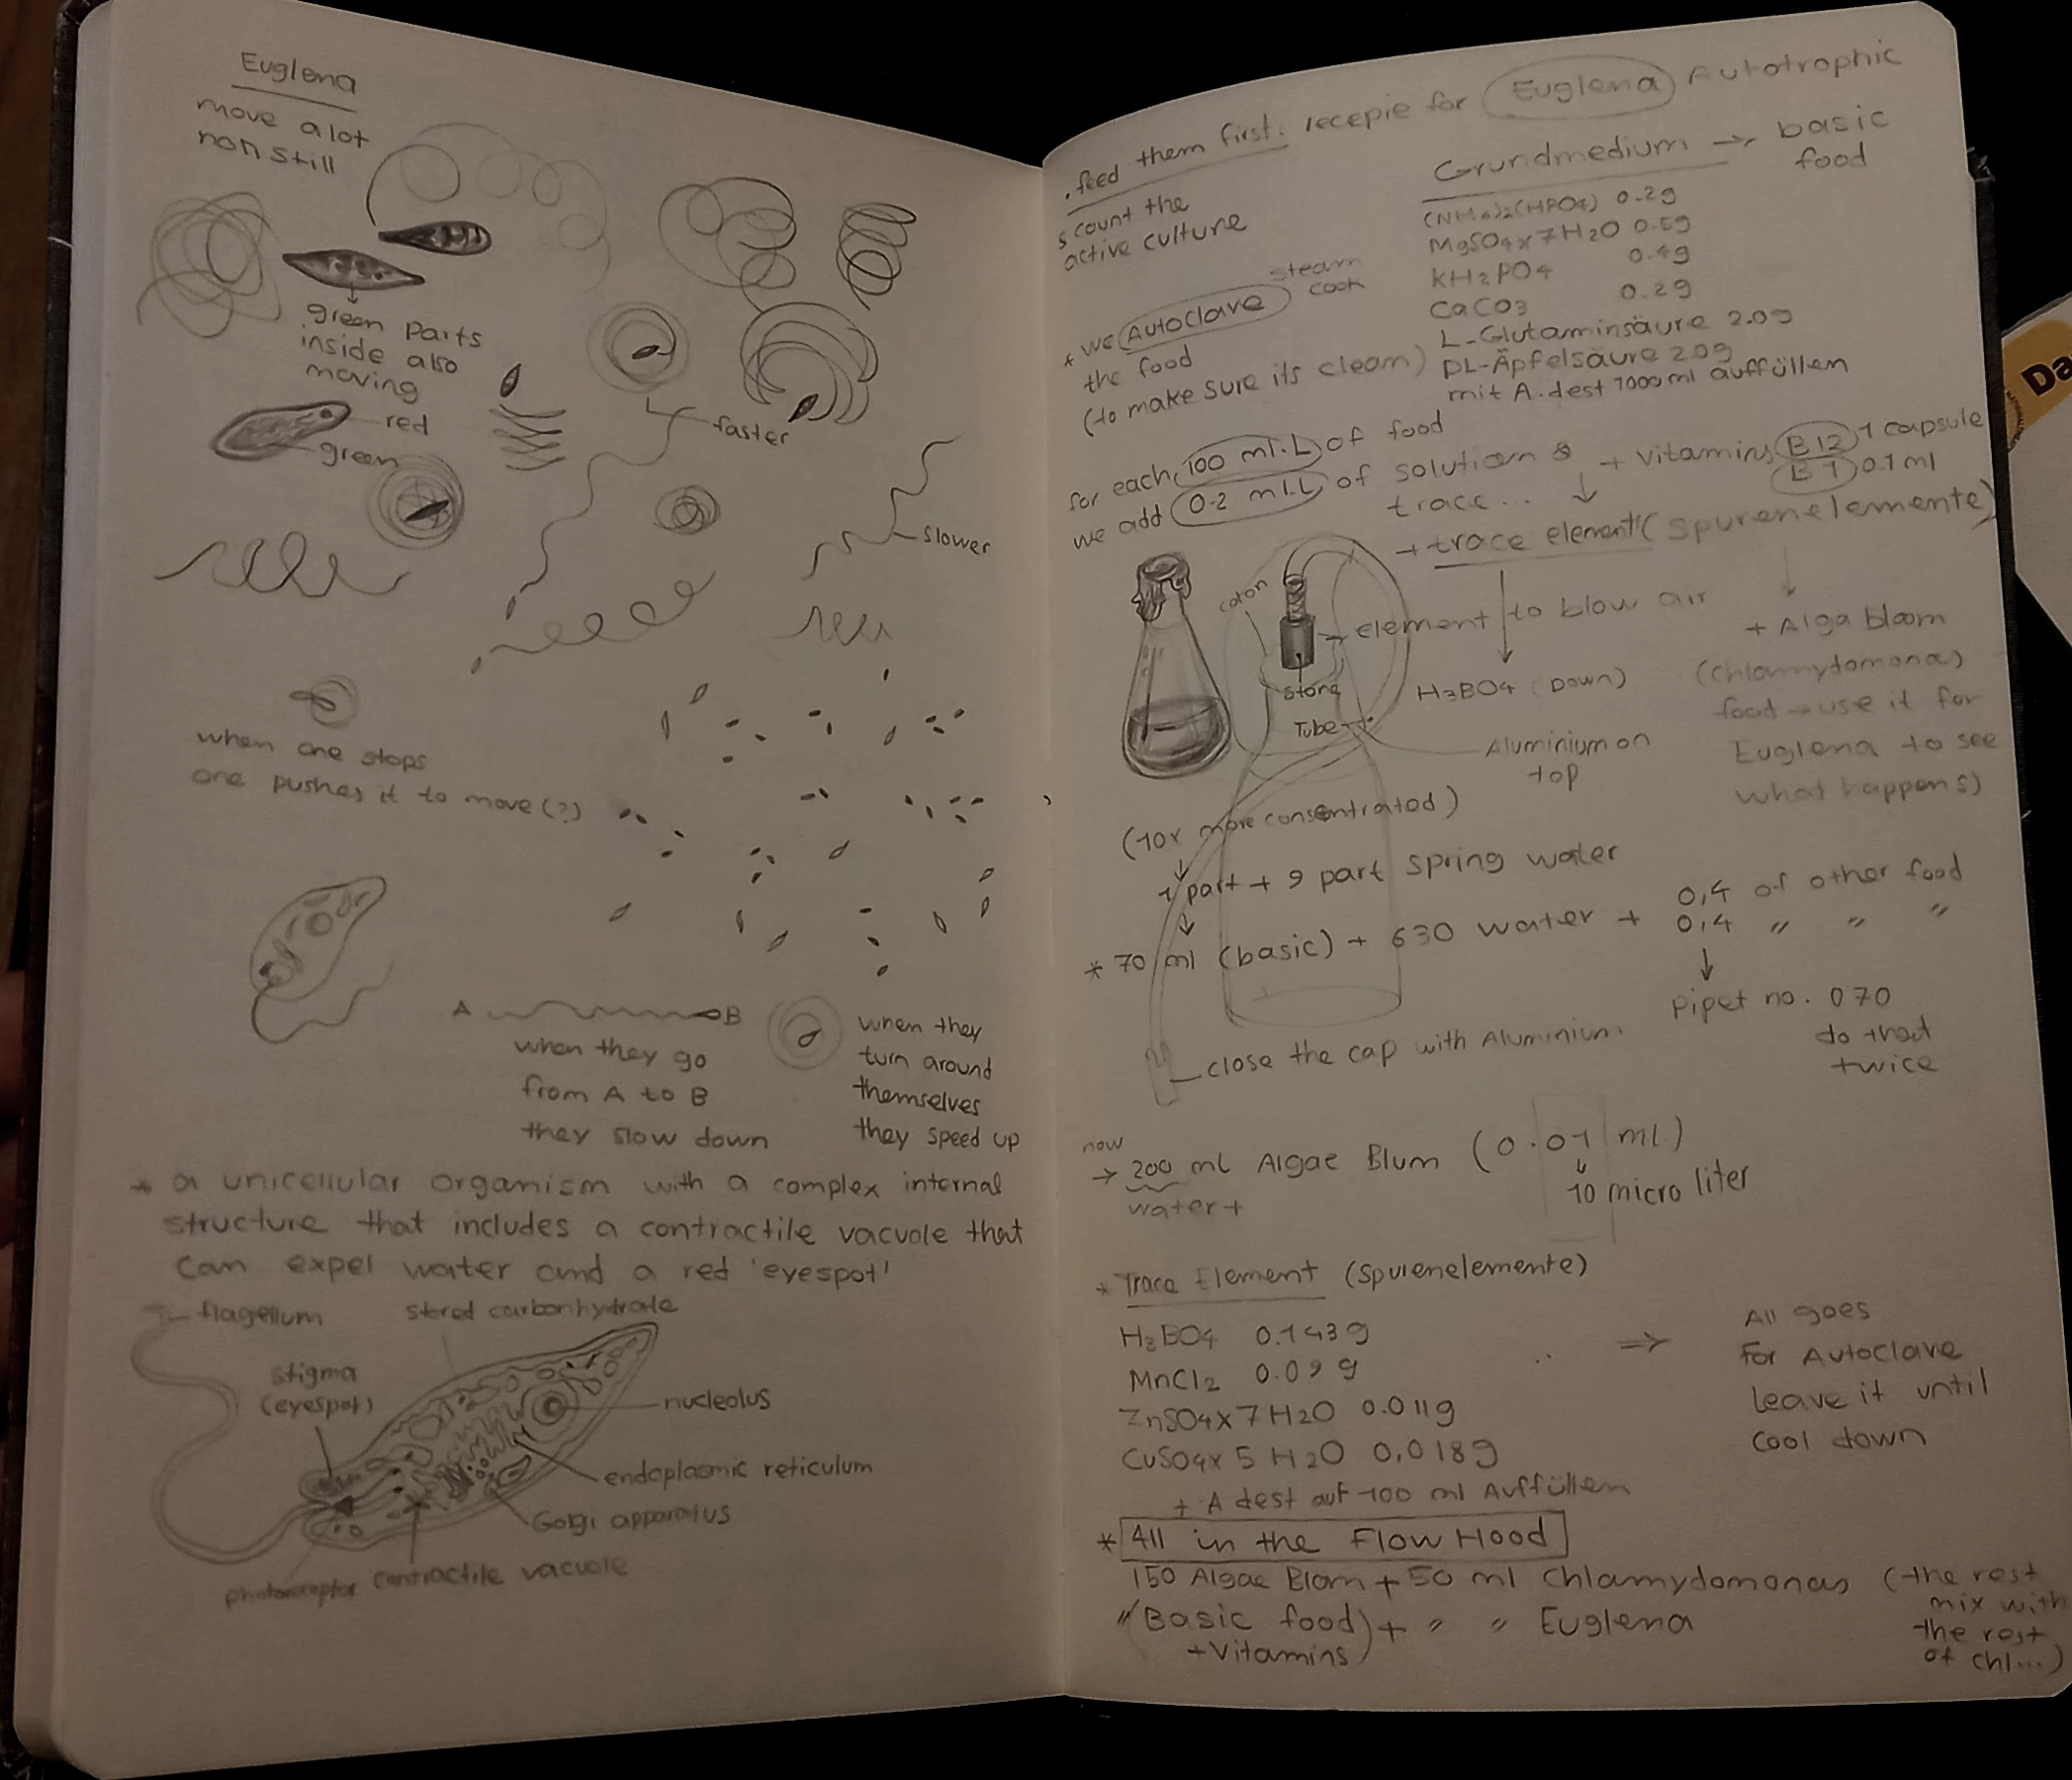 Euglena
move a lot
non still
green parts
inside also
moving
red
green
faster
slower
when one stops
one pushes it to move (?)
A
B
when they go
from A to B
they slow down
when they
turn around
themselves
they speed up
* a unicellular organism with a complex internal
structure that includes a contractile vacuole that
can expel water and a red 'eyespot'
flagellum
stored carbonhydrate
stigma
(eyespot)
nucleolus
endoplasmic reticulum
Golgi apparatus
contractile vacuole
photoreceptor
. feed them first. recepie for Euglena Autotrophic
count the
active culture
Grundmedium → basic
food
(NH4)2(HPO4) 0.2g
MgSO4x7H2O 0.5g
KH2PO4 0.4g
CaCO3 0.2g
L-Glutaminsäure 2.0g
DL-Äpfelsäure 2.0g
mit A.dest 1000 ml auffüllen
* we Autoclave steam
cook
the food
(to make sure its clean)
for each 100 ml.L of food
we add 0.2 ml.L of solution &
trace...
+ vitamins B12 1 capsule
B1 0.1 ml
+ trace element (spurenelemente)
coton
element to blow air
stone
Tube
H3BO4 (Down)
Aluminium on
top
+ Alga bloom
(Chlamydomona)
food → use it for
Euglena to see
what happens)
(10x more consentrated)
1 part + 9 part spring water
* 70 ml (basic) + 630 water + 0,4 of other food
0,4 " " "
pipet no. 070
do that
twice
close the cap with Aluminium
now
→ 200 ml Algae Blum (0.01 ml)
water +
10 micro liter
* Trace Element (Spurenelemente)
H3BO4 0.143 g
MnCl2 0.09 g
ZnSO4x7H2O 0.011g
CuSO4x5H2O 0,018g
+ A dest auf 100 ml Auffüllen
⇒ All goes
For Autoclave
leave it until
cool down
* All in the Flow Hood
150 Algae Blom + 50 ml Chlamydomonas (the rest
mix with
the rest
of chl...)
" (Basic food) + " " Euglena
+ Vitamins
Da